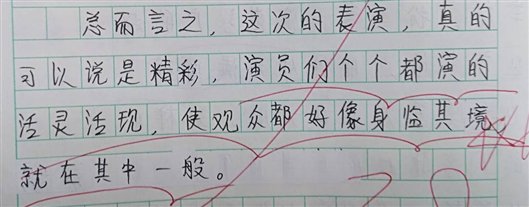 总而言之，这次的表演，真的
可以说是精彩，演员们个个都演的
活灵活现，使观众都好像身临其境，
就在其中一般。